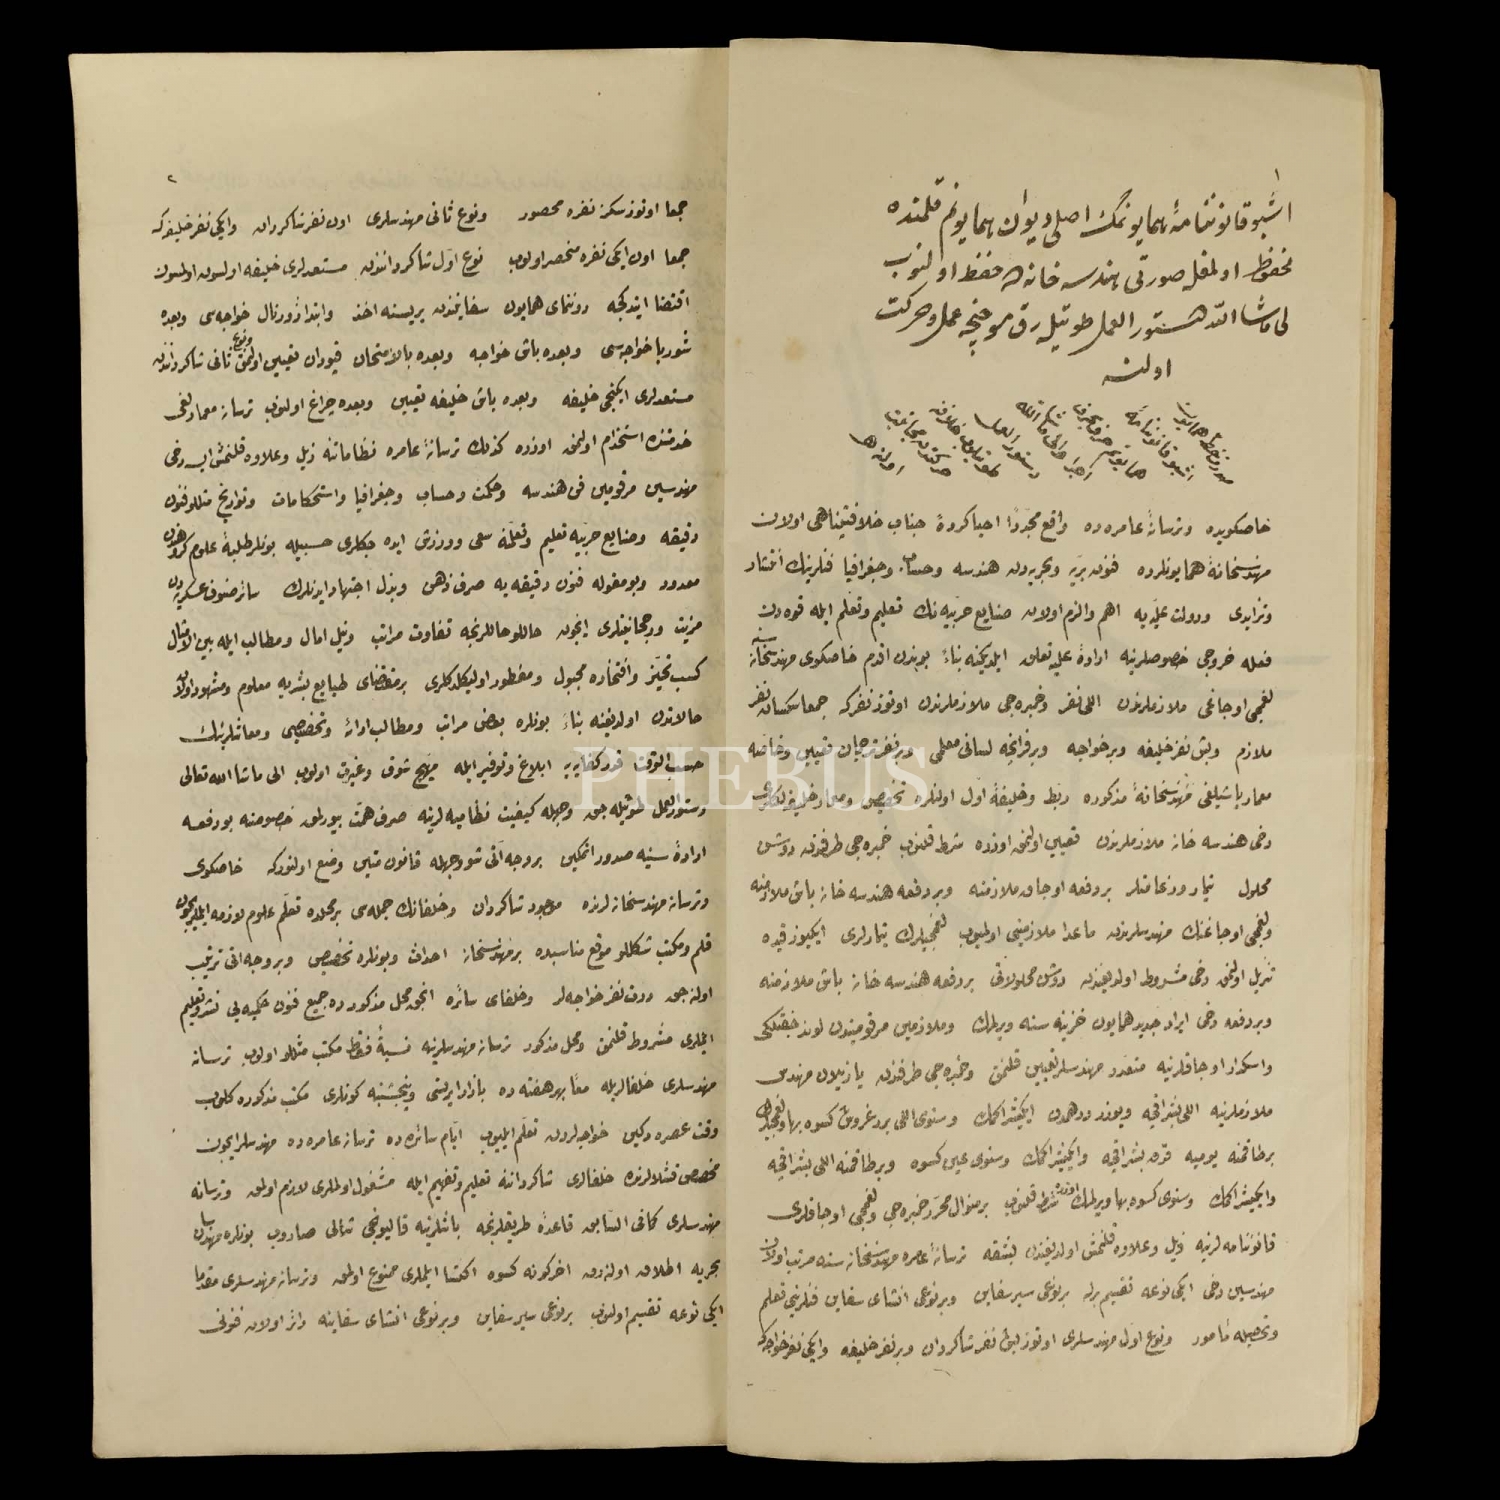 ١
اشبو قانوننامهٔ همایونمك اصلی دیوان همایونم قلمنده
محفوظ اولمغله صورتی هندسه خانه ده حفظ اولنوب
الی ماشاالله دستور العمل طوتیله رق موجبنجه عمل و حركت
اولنه
خاصكویده و ترسانهٔ عامره ده واقع مجددا احیا كردهٔ جناب خلافتپناهی اولان
مهندسخانهٔ همایونلرده فنون بریه و بحریه دن هندسه و حساب و جغرافیا فنلرینك انتشار
و تزایدی و دولت علیه یه اهم و الزم اولان صنایع حربیه نك تعلیم و تعلم ایله قوه دن
فعله خروجی خصوصلرینه ارادهٔ علیه تعلق ایلدیكنه بناءً بوندن اقدم خاصكوی مهندسخانه
لغمجی اوجاغی ملازملرندن اللی نفر و خمبره جی ملازملرندن اوتوز نفر كه جمعا سكسان نفر
ملازم و بش نفر خلیفه و بر خواجه و بر فرانچه لسانی معلمی و بر نفر ترجمان تعیین و خاصه
معمار باشیلغی مهندسخانهٔ مذكوره ربط و خلیفهٔ اول اولنلره تخصیص و معمار خلیفه لكلری
دخی هندسه خانه ملازملرندن تعیین اولنمق اوزره شرط قلنوب خمبره جی طرفندن دوشن
محلول تیمار و زعامتلر بر دفعه اوجاق ملازمنه و بر دفعه هندسه خانه باش ملازمنه
و لغمجی اوجاغنك مهندسلرندن ماعدا ملازمینی اولمیوب لغمجیلرك تیمارلری ایكیوز قیده
تنزیل اولنمق دخی مشروط اولدیغندن دوشن محلولاتی بر دفعه هندسه خانه باش ملازمنه
و بر دفعه دخی ایراد جدید همایون خزینه سنه ویرلمك و ملازمین مرقومیندن لوند چفتلكی
و اسكدار اوجاقلرینه متعدد مهندسلر تعیین قلنمق و خمبره جی طرفندن یازیلان مهندس
ملازملرینه اللی بشر اقچه و یوزر درهمدن ایكیشر اتمك و سنوی اللی بر غروش كسوه بها و لغمجیلرك
بر طاقمنه یومیه قرق بشر اقچه و ایكیشر اتمك و سنوی عین كسوه و بر طاقمنه اللی بشر اقچه
و ایكیشر اتمك و سنوی كسوه بها ویرلمك اوزره شرط قلنوب بر منوال محرر خمبره جی و لغمجی اوجاقلری
قانوننامه لرینه ذیل و علاوه قلنمش اولدیغندن بشقه ترسانهٔ عامره مهندسخانه سنه مرتب اولان
مهندسین دخی ایكی نوعه تقسیم برله بر نوعی سیر سفاین و بر نوعی انشای سفاین فنلرینی تعلم
و تحصیله مأمور و نوع اول مهندسلری اوتوز بش نفر شاكردان و بر نفر خلیفه و ایكی نفر خواجه كه
٢
جمعا اوتوز سكز نفره محصور و نوع ثانی مهندسلری اون نفر شاكردان و ایكی نفر خلیفه كه
جمعا اون ایكی نفره منحصر اولوب نوع اول شاكرداننك مستعدلری خلیفه اولسون اولمسون
اقتضا ایتدكجه دوننمای همایون سفاینندن بریسنه اخذ و ابتدا ژورنال خواجه سی و بعده
شوربا خواجه سی و بعده باش خواجه و بعده بالامتحان قپودان تعیین اولنمق و نوع ثانی شاكرداننك
مستعدلری ایكنجی خلیفه و بعده باش خلیفه تعیین و بعده چراغ اولنوب ترسانه معمارلغی
خدمتنده استخدام اولنمق اوزره كذلك ترسانهٔ عامره نظاماتنه ذیل و علاوه قلنمش ایسه دخی
مهندسین مرقومین فن هندسه و حكمت و حساب و جغرافیا و استحكامات و تواریخ مثللو فنون
دقیقه و صنایع حربیه تعلیم و تعلمنه سعی و ورزش ایده جكلری حسبیله بونلر طلبهٔ علوم كروهندن
معدود و بو مقوله فنون دقیقه یه صرف ذهن و بذل اجتهاد ایدنلرك سائر صنوف عسكریه دن
مزیت و رجحانیتلری ایچون حاللو حاللرنجه تفاوت مراتب و نیل امال و مطالب ایله بین الامثال
كسب تحیز و افتخاره مجبول و مفطور اوله كلدكلری بر مقتضای طبایع بشریه معلوم و مشهود اولان
حالاتدن اولدیغنه بناءً بونلره بعض مراتب و مطالب ارائه و تخصیصی و معاشلرینك
حسب الوقت قدر كفایه یه ابلاغ و توفیر ایله مهیج شوق و غیرت اولوب الی ماشاالله تعالی
دستور العمل طوتیله جق وجهله كیفیت نظامیه لرینه صرف همت بیورلمق خصوصنه بو دفعه
ارادهٔ سنیه صدور ایتمكین بر وجه آتی شو وجهله قانون متین وضع اولنور كه خاصكوی
و ترسانه مهندسخانه لرنده موجود شاكردان و خلفانك جمله سی بر محلده تعلم علوم لازمه ایلملریچون
قلم و مكتب شكللو موقع مناسبده بر مهندسخانه احداث و بونلره تخصیص و بر وجه اتی ترتیب
اولنه جق درت نفر خواجه لر و خلفای سائره انجق محل مذكورده جمیع فنون حكمیه یی نشر و تعلیم
ایلملری مشروط قلنمق و محل مذكور ترسانه مهندسلرینه نسبةً فقط مكتب مثللو اولوب ترسانه
مهندسلری خلفالریله معا بهر هفته ده بازار ایرتسی و پنجشنبه كونلری مكتب مذكوره كلوب
وقت عصره دكین خواجه لردن تعلم ایلیوب ایام سائره ده ترسانه عامره ده مهندسلر ایچون
مخصوص قشلالرنده خلفالری شاكرداننه تعلیم و تفهیم ایله مشغول اولملری لازم اولمق و ترسانه
مهندسلری كما فی السابق قاعده و طریقلرنجه باشلرینه قالیونجی شالی صاروب بونلره مهندسان
بحریه اطلاق اولنه رق اخر كونه كسوه اكتسا ایلملری ممنوع اولمق و ترسانه مهندسلری مقدما
ایكی نوعه تقسیم اولنوب بر نوعی سیر سفاین و بر نوعی انشای سفاینه دائر اولان فنونی
PHEBUS